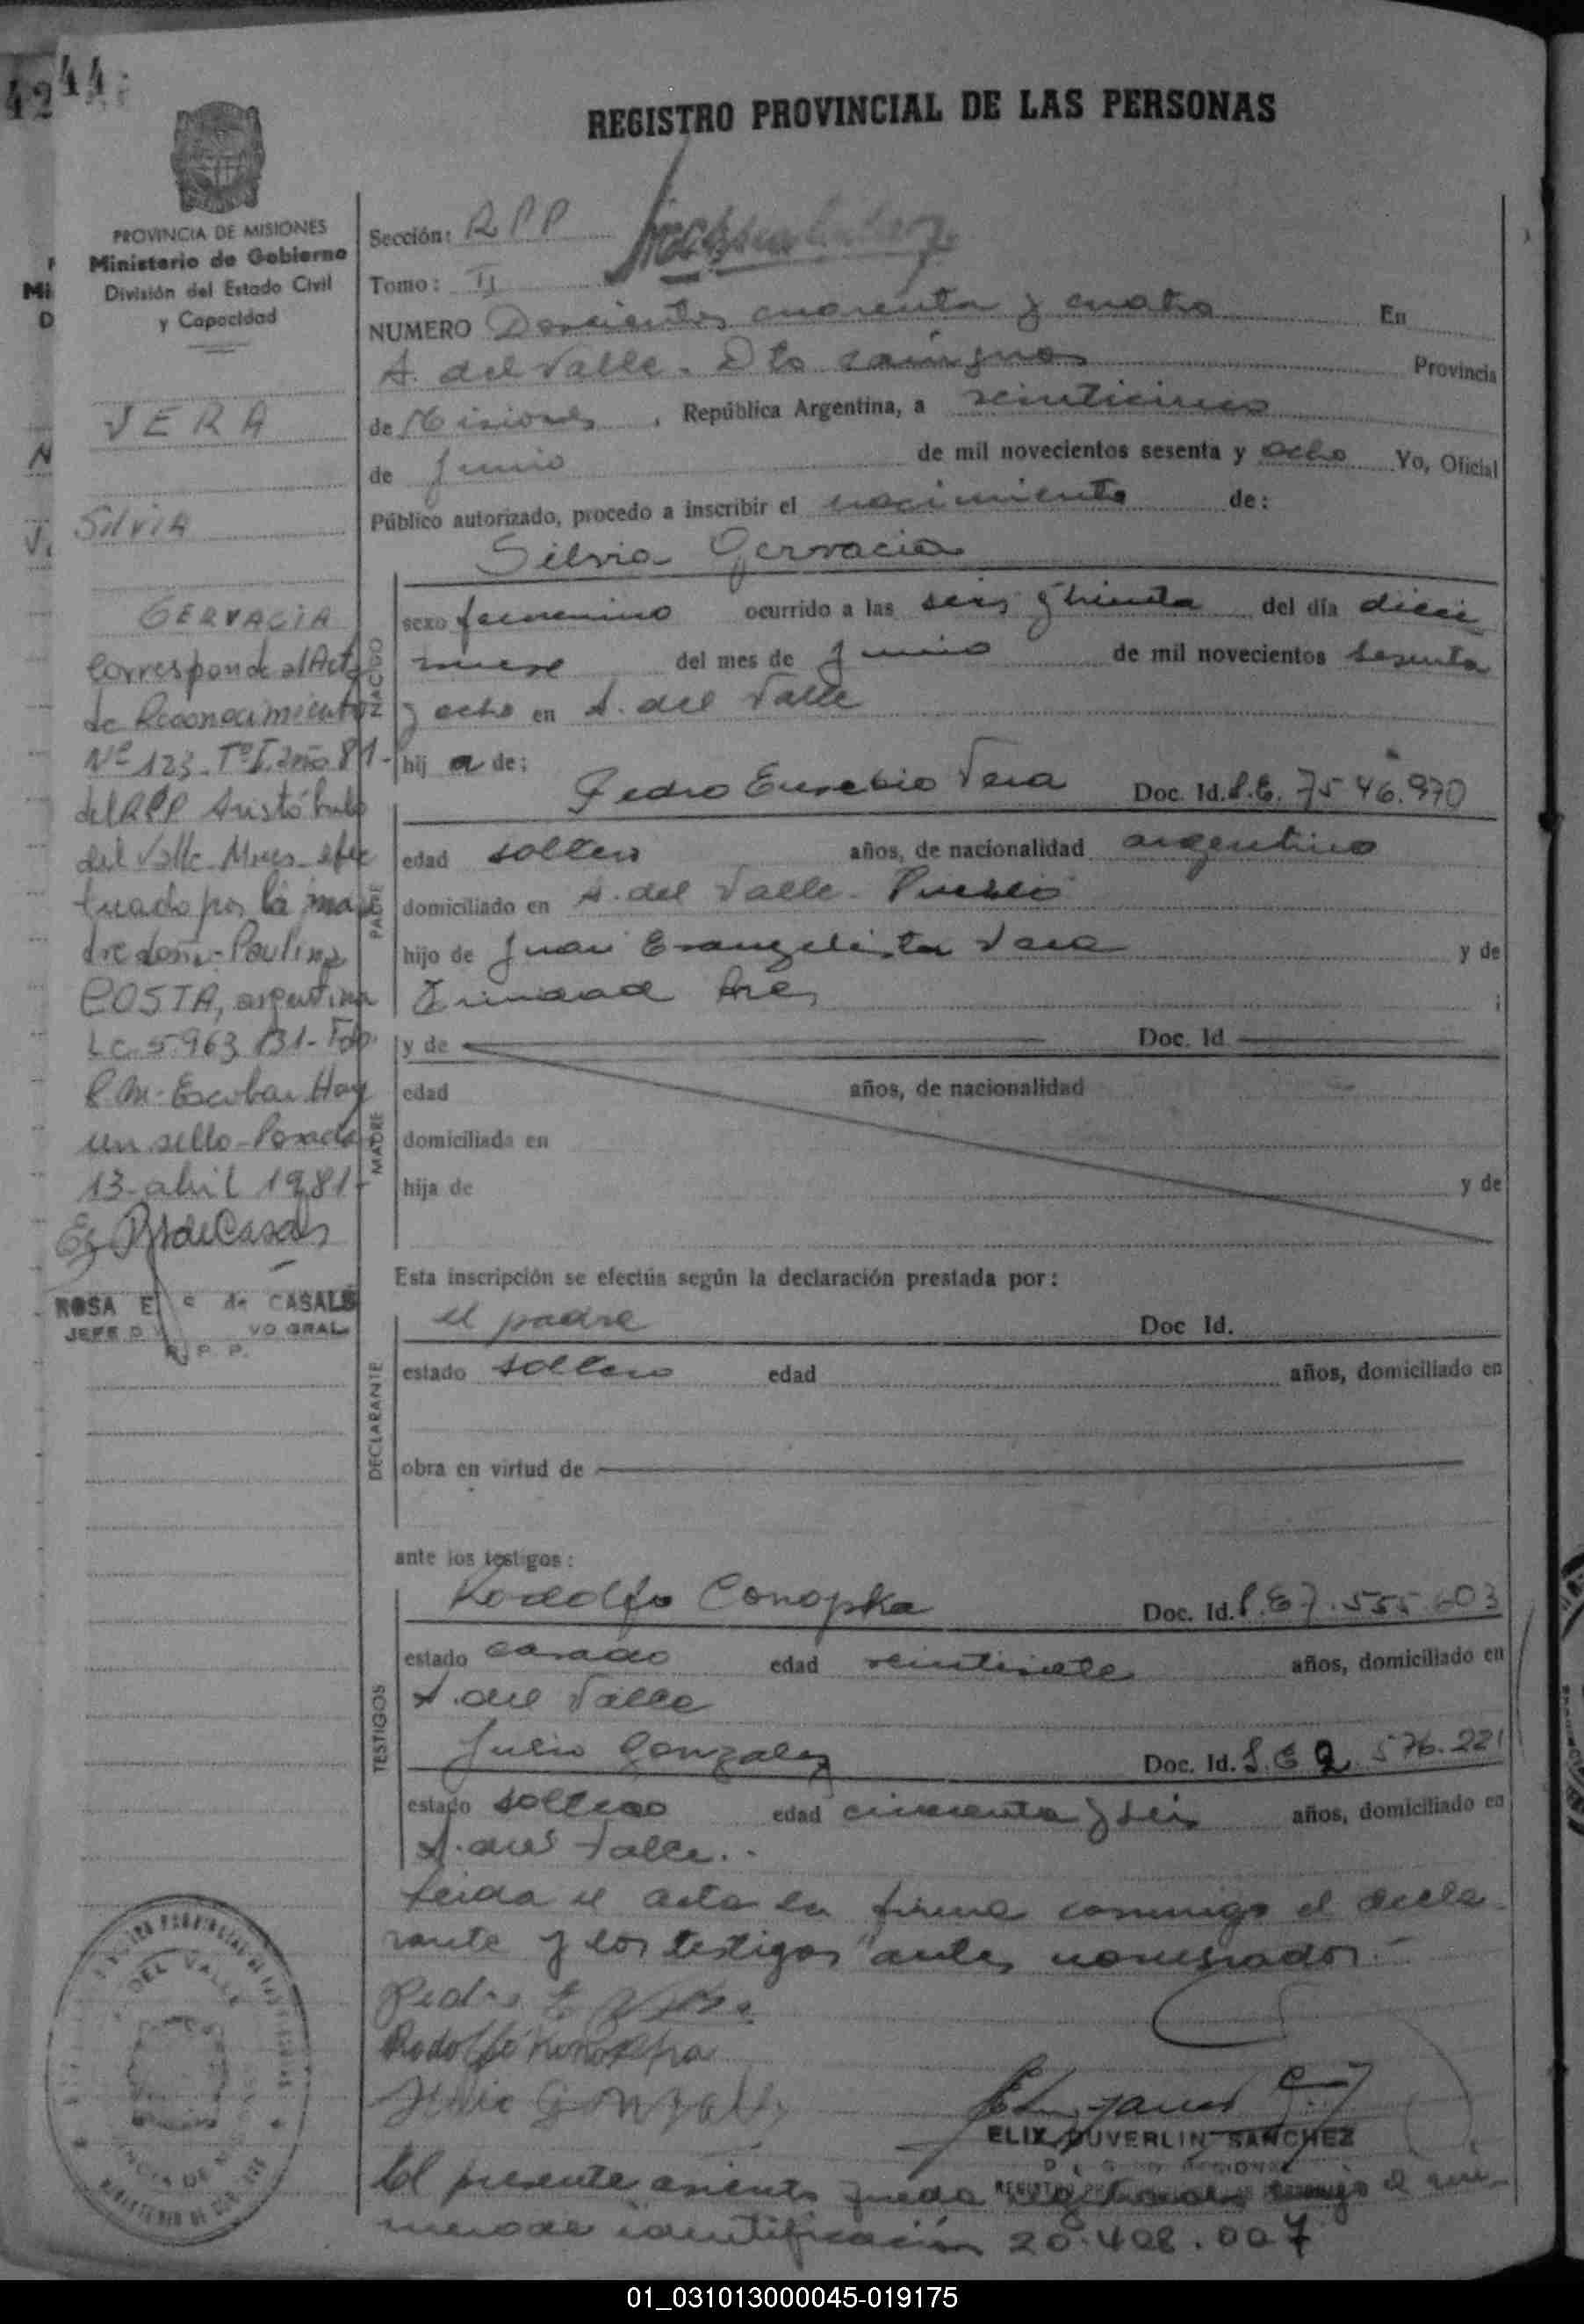 44
42
REGISTRO PROVINCIAL DE LAS PERSONAS
PROVINCIA DE MISIONES
Ministerio de Gobierno
División del Estado Civil
y Capacidad
VERA
Silvia
GERVACIA
Corresponde al Acta
de Reconocimiento
Nº 123 Tº I año 81-
del RPP Aristóbulo
del Valle Mnes efec
tuado por la ma
dre doña Paulina
COSTA, argentina
Lc. 5.963.131- Fdo.
R.M. Escobar Hay
un sello Posadas
13 abril 1981-
ROSA E de CASALS
JEFE
VO GRAL
R. P. P.
Sección: RPP
Tomo: II
NUMERO Doscientos cuarenta y cuatro En
A. del Valle. Dto Cainguas Provincia
de Misiones, República Argentina, a veinticinco
de Junio de mil novecientos sesenta y ocho Yo, Oficial
Público autorizado, procedo a inscribir el nacimiento de:
Silvia Gervacia
NACIDO
sexo femenino ocurrido a las seis y treinta del día dieci
nueve del mes de Junio de mil novecientos sesenta
y ocho en A. del Valle
hij a de:
PADRE
Pedro Eusebio Vera Doc. Id. L.E. 7546.970
edad soltero años, de nacionalidad argentino
domiciliado en A. del Valle - Pueblo
hijo de Juan Evangelista Vera y de
Trinidad
MADRE
y de Doc. Id
edad años, de nacionalidad
domiciliada en
hija de y de
Esta inscripción se efectúa según la declaración prestada por:
DECLARANTE
el padre Doc Id.
estado soltero edad años, domiciliado en
obra en virtud de
ante los testigos:
TESTIGOS
Rodolfo Conopka Doc. Id. L.E 7.555.603
estado casado edad veintisiete años, domiciliado en
A. del Valle
Julio Gonzalez Doc. Id. L.E 2 576.221
estado soltero edad cincuenta y seis años, domiciliado en
A. del Valle..
Leida el acta la firma conmigo el decla
rante y los testigos antes nombrados.-
Pedro E Vera
Rodolfo Konopka
Julio Gonzalez
ELIX DUVERLIN SANCHEZ
El presente asiento queda registrado bajo el nú-
mero de identificación 20.408.007
01_031013000045-019175